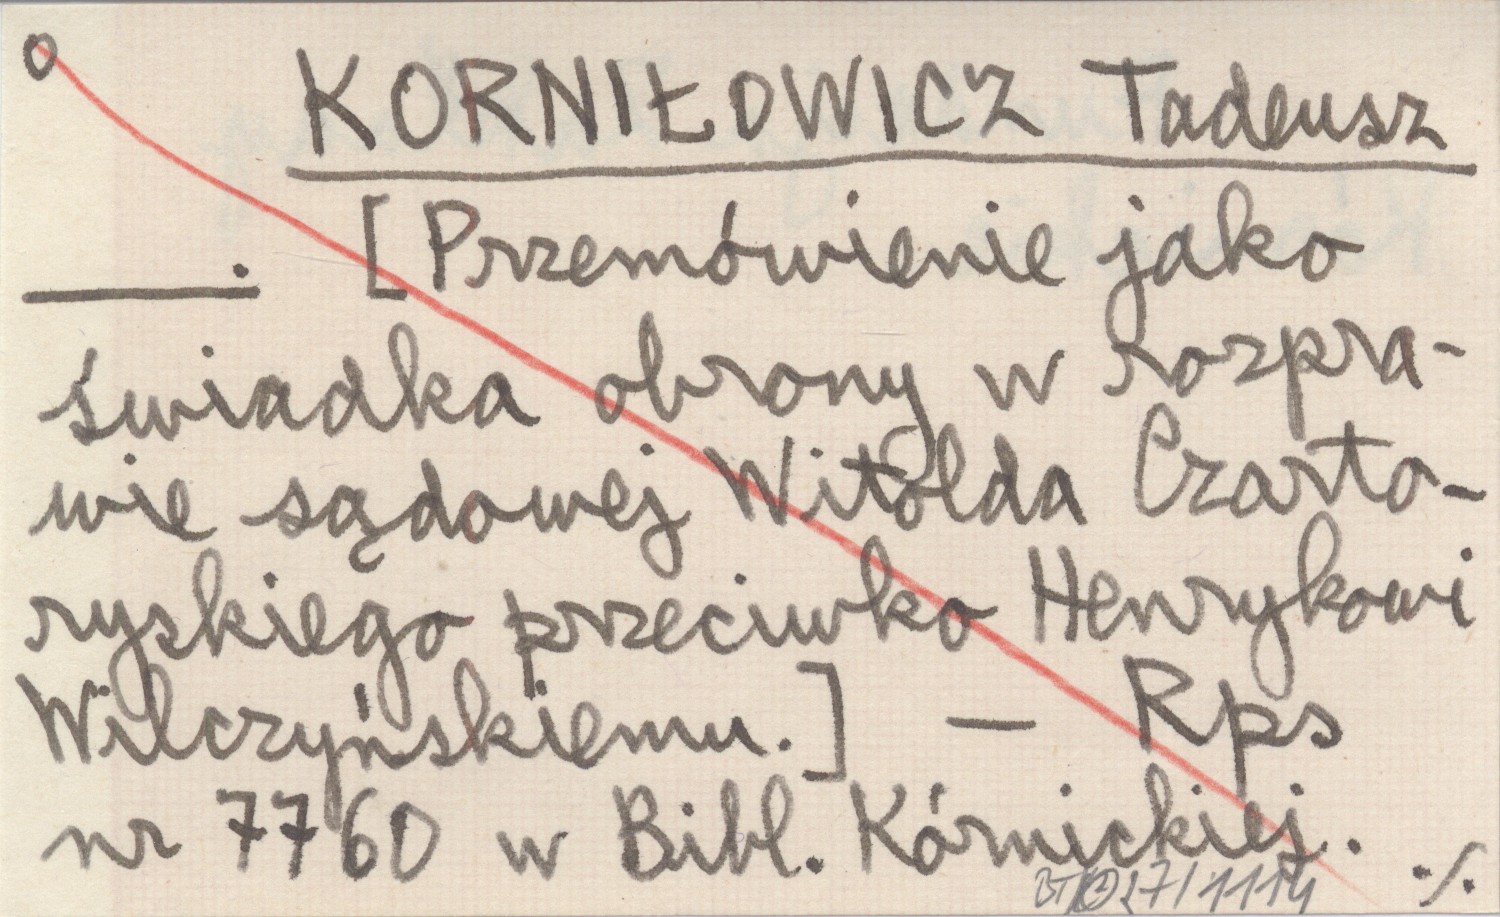 o KORNIŁOWICZ Tadeusz
———. [Przemówienie jako
świadka obrony w rozpra-
wie sądowej Witolda Czarto-
ryskiego przeciwko Henrykowi
Wilczyńskiemu.] — Rps
nr 7760 w Bibl. Kórnickiej. ./.